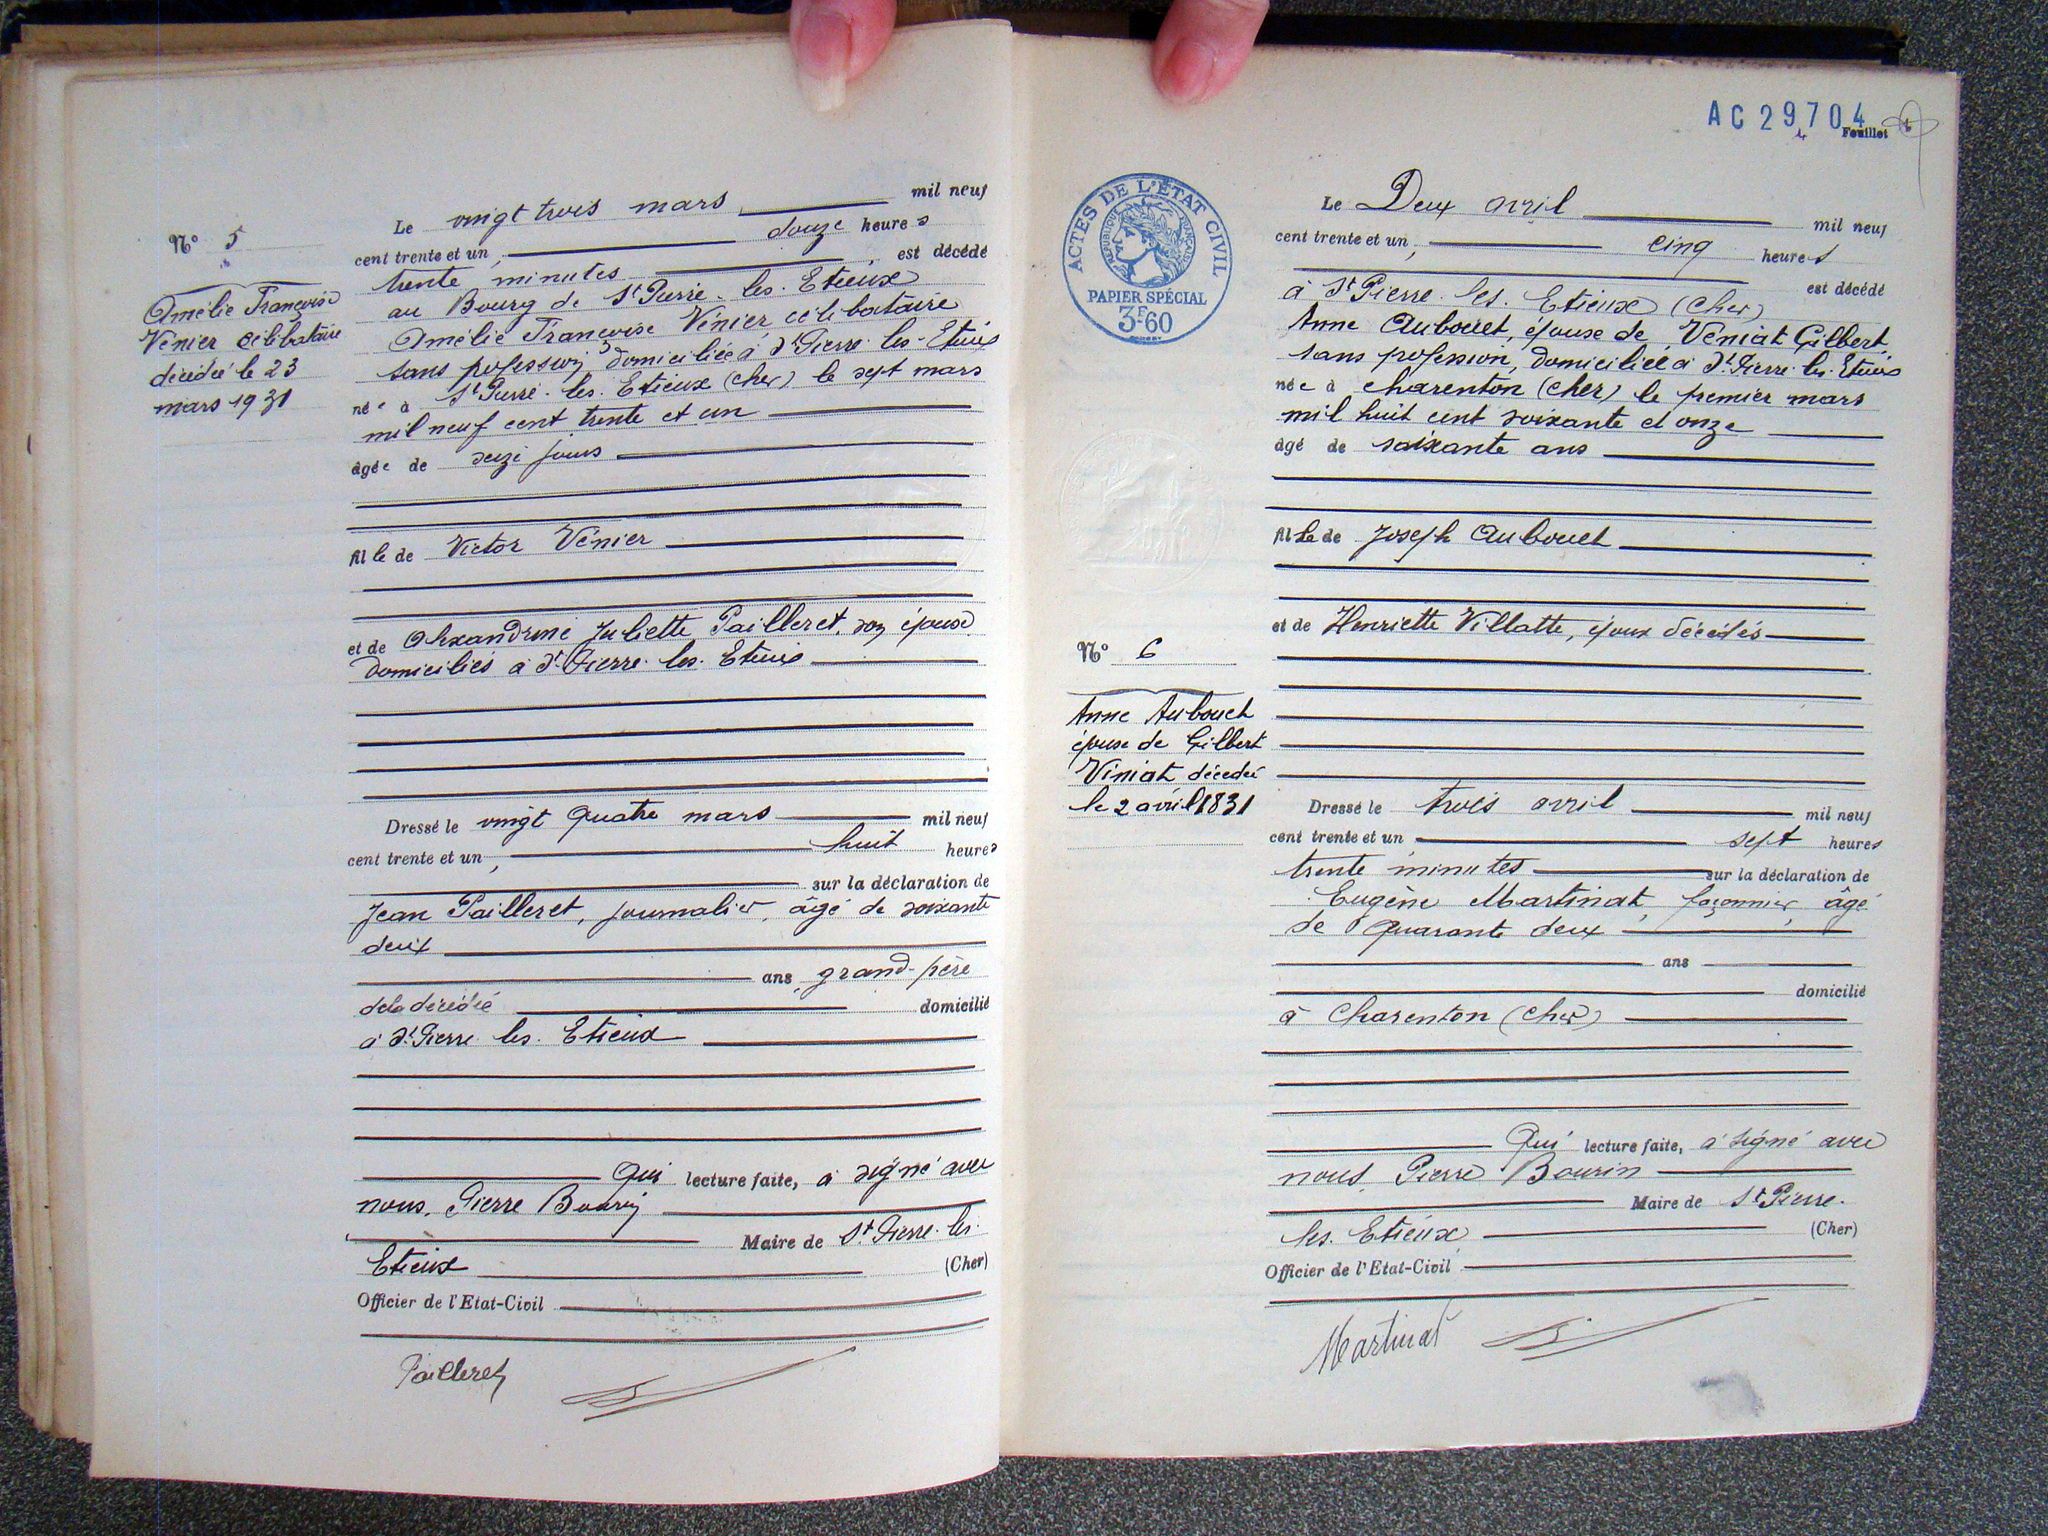 N° 5
Amélie Françoise
Vénier célibataire
décédée le 23
mars 1931
Le vingt trois mars mil neuf
cent trente et un, douze heures
trente minutes, est décédé
au Bourg de St Pierre-les-Etieux
Amélie Françoise Vénier célibataire
sans profession, domiciliée à St Pierre-les-Etieux
née à St Pierre-les-Etieux (Cher) le sept mars
mil neuf cent trente et un
âgée de seize jours
fille de Victor Vénier
et de Alexandrine Juliette Pailleret, son épouse
domiciliés à St Pierre-les-Etieux
Dressé le vingt quatre mars mil neuf
cent trente et un, huit heures
sur la déclaration de
Jean Pailleret, journalier, âgé de soixante
deux
ans, grand-père
de la décédée domicilié
à St Pierre-les-Etieux
Qui lecture faite, a signé avec
nous, Pierre Bourin
Maire de St Pierre-les-
Etieux (Cher)
Officier de l'Etat-Civil
Pailleret
AC 29704
Feuillet
ACTES DE L'ÉTAT CIVIL
RÉPUBLIQUE FRANÇAISE
PAPIER SPÉCIAL
3F60
N° 6
Anne Aubouet
épouse de Gilbert
Véniat décédée
le 2 avril 1831
Le Deux avril mil neuf
cent trente et un, cinq heures
est décédé
à St Pierre-les-Etieux (Cher)
Anne Aubouet, épouse de Véniat Gilbert,
sans profession, domiciliée à St Pierre-les-Etieux
née à Charenton (Cher) le premier mars
mil huit cent soixante et onze
âgé de soixante ans
fille de Joseph Aubouet
et de Henriette Villatte, époux décédés
Dressé le trois avril mil neuf
cent trente et un sept heures
trente minutes sur la déclaration de
Eugène Martinat, façonnier, âgé
de quarante deux
ans
domicilié
à Charenton (Cher)
Qui lecture faite, a signé avec
nous, Pierre Bourin
Maire de St Pierre-
les-Etieux (Cher)
Officier de l'Etat-Civil
Martinat